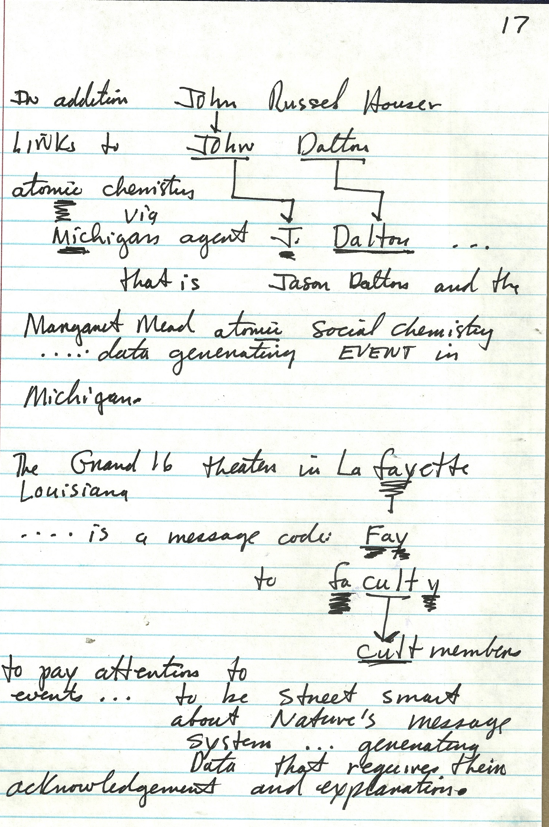 17
In addition John Russel Houser
LINKS to John Dalton
atomic chemistry
via
Michigan agent J. Dalton ...
that is Jason Dalton and the
Margaret Mead atomic social chemistry
..... data generating EVENT in
Michigan.
The Grand 16 theater in Lafayette
Louisiana
.... is a message code: Fay
to faculty
cult members
to pay attention to
events... to be street smart
about Nature's message
system ... generating
Data that requires their
acknowledgement and explanation.